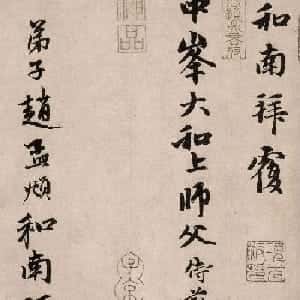 和南拜覆
中峯大和上師父侍者
弟子趙孟頫和南